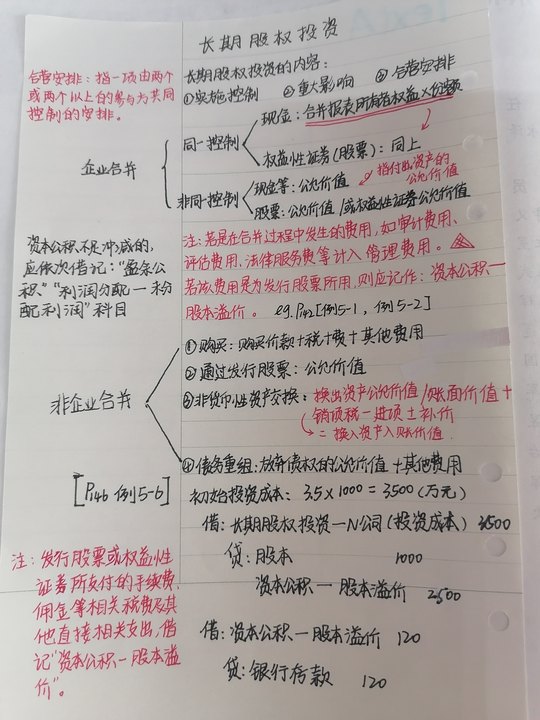 长期股权投资
合营安排：指一项由两个
或两个以上的参与方共同
控制的安排。
长期股权投资的内容：
①实施控制 ②重大影响 ③合营安排
企业合并
同一控制
现金：合并报表所有者权益×份额
权益性证券(股票)：同上
非同一控制
现金等：公允价值
指付出资产的
公允价值
股票：公允价值/或权益性证券公允价值
资本公积不足冲减的，
应依次借记：“盈余公
积”“利润分配一未分
配利润”科目
注：若是在合并过程中发生的费用，如审计费用、
评估费用、法律服务费等计入管理费用。
若该费用是为发行股票所用，则应记作：资本公积一
股本溢价。 eg.P142[例5-1，例5-2]
非企业合并
①购买：购买价款+税+费+其他费用
②通过发行股票：公允价值
③非货币性资产交换：换出资产公允价值/账面价值+
销项税一进项±补价
=换入资产入账价值.
④债务重组：放弃债权的公允价值+其他费用
[P146 例5-6]
初始投资成本：3.5×1000=3500(万元)
借：长期股权投资一N公司(投资成本) 3500
贷：股本 1000
资本公积一股本溢价 2500
注：发行股票或权益性
证券所支付的手续费、
佣金等相关税费及其
他直接相关支出，借
记“资本公积一股本溢
价”。
借：资本公积一股本溢价 120
贷：银行存款 120